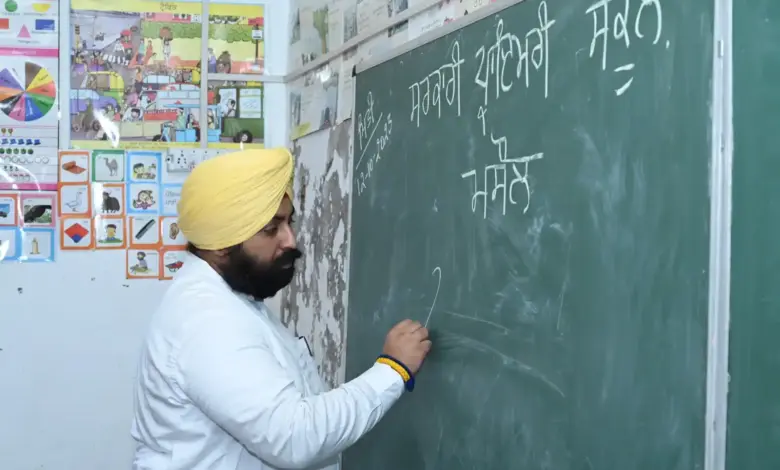 ਮਿਤੀ
12-10-2025
ਸਰਕਾਰੀ ਪ੍ਰਾਇਮਰੀ ਸਕੂਲ.
ਮਸੌਲ